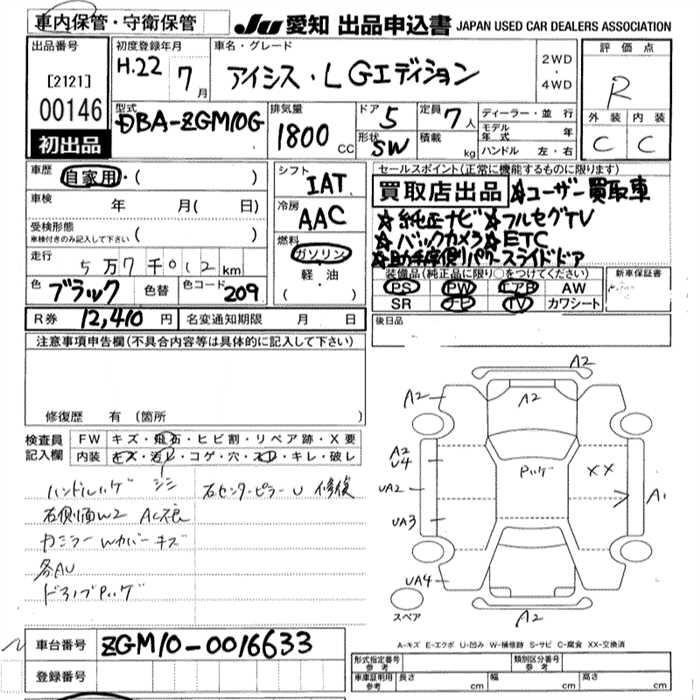 車内保管・守衛保管
JU 愛知 出品申込書 JAPAN USED CAR DEALERS ASSOCIATION
出品番号
[2121]
00146
初出品
初度登録年月
H.22 7月
車名・グレード
アイシス・L Gエディション
2WD・4WD
評価点
R
外装 内装
C C
型式
DBA-ZGM10G
排気量
1800 CC
ドア 5
形状 SW
定員 7人
積載 kg
ディーラー・並行
モデル年式 年
ハンドル 左・右
車歴 自家用・( )
車検 年 月( 日)
受検形態 ( )
車検付きのみ記入して下さい
走行 5万7千012km
色 ブラック 色替 色コード 209
R券 12,410円 名変通知期限 月 日
シフト
IAT
冷房
AAC
燃料
ガソリン
軽・油
( )
セールスポイント(正常に機能するものに限ります)
買取店出品 ☆ユーザー買取車
☆純正ナビ☆フルセグTV
☆バックカメラ☆ETC
☆助手席側パワースライドドア
装備品(純正品に限り○をつけてください)
PS PW エアB AW
SR ナビ TV カワシート
新車保証書
後日品
注意事項申告欄(不具合内容等は具体的に記入して下さい)
修復歴 有(箇所 )
検査員記入欄
FW キズ・飛石・ヒビ割・リペア跡・X要
内装 キズ・汚レ・コゲ・穴・スレ・キレ・破レ
ハンドルハゲ 右センターピラーU 修復
右側面W2
カラミラーWカバーキズ
各AU
A2
A2 A2
A2
U4
UA2
UA3
UA4
Pハゲ
XX
A1
A2
スペア
A-キズ E-エクボ U-凹み W-補修跡 S-サビ C-腐食 XX-交換済
車台番号 ZGM10-0016633
登録番号
形式指定番号 参考
類別区分番号 参考
車庫証明用 参考
長さ cm 幅 cm 高さ cm